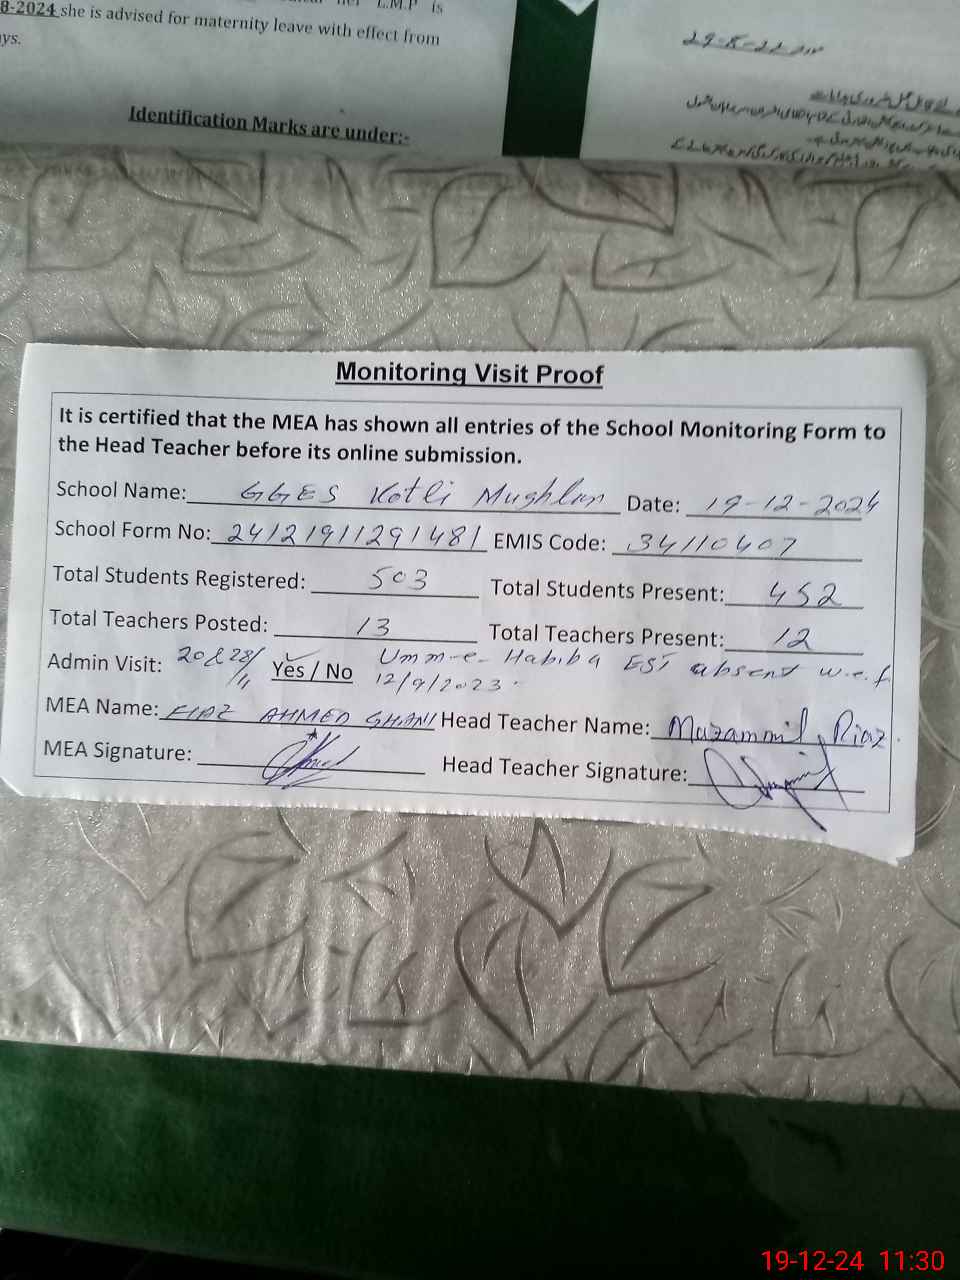 L.M.P is
8-2024 she is advised for maternity leave with effect from
ys.
Identification Marks are under:-
Monitoring Visit Proof
It is certified that the MEA has shown all entries of the School Monitoring Form to
the Head Teacher before its online submission.
School Name: GGES Kotli Mughlan Date: 19-12-2024
School Form No: 24121911291481 EMIS Code: 34110407
Total Students Registered: 503 Total Students Present: 452
Total Teachers Posted: 13 Total Teachers Present: 12
Admin Visit: 20&28/11 Yes / No Umm-e-Habiba EST absent w.e.f
12/9/2023
MEA Name: FIAZ AHMED GHANI Head Teacher Name: Mazammil Riaz.
MEA Signature: Head Teacher Signature:
19-12-24 11:30